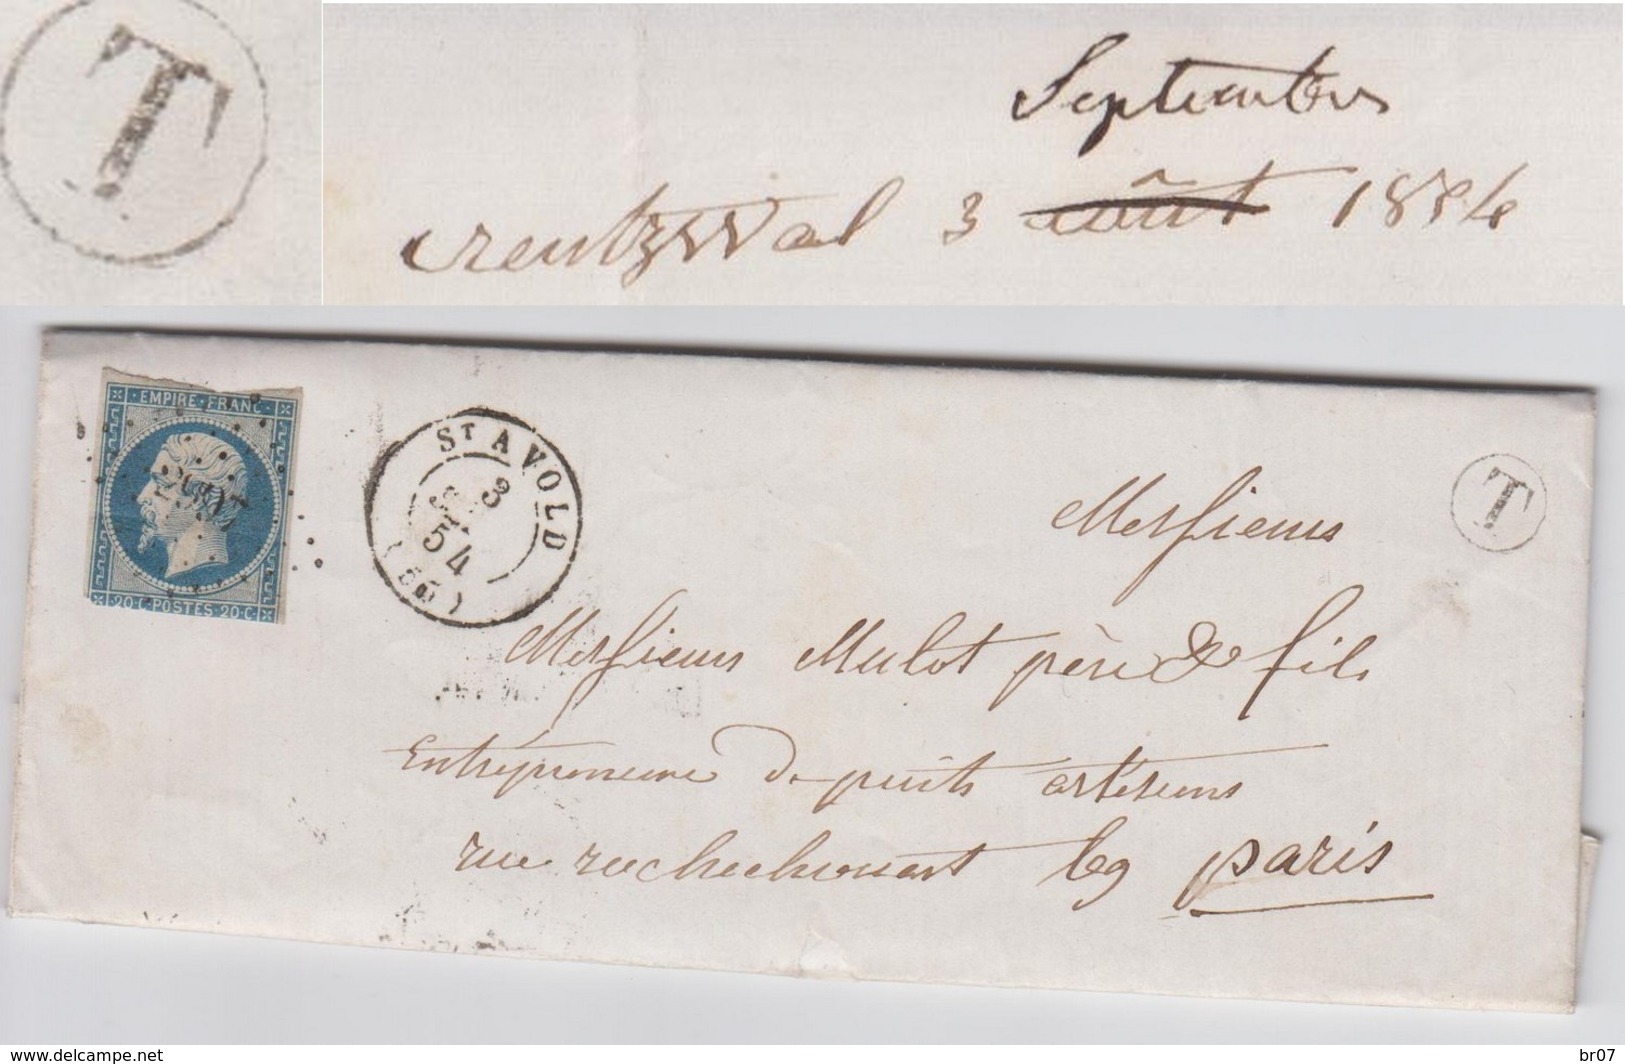 T
Septembre
Creutzwal 3 août 1854
EMPIRE · FRANC ·
2907
20·C·POSTES·20·C·
ST AVOLD
3
SEPT.
54
(55)
T
Messieurs
Messieurs Mulot père & fils
Entrepreneurs de puits artésiens
rue rochechouart 69 paris
www.delcampe.net
br07